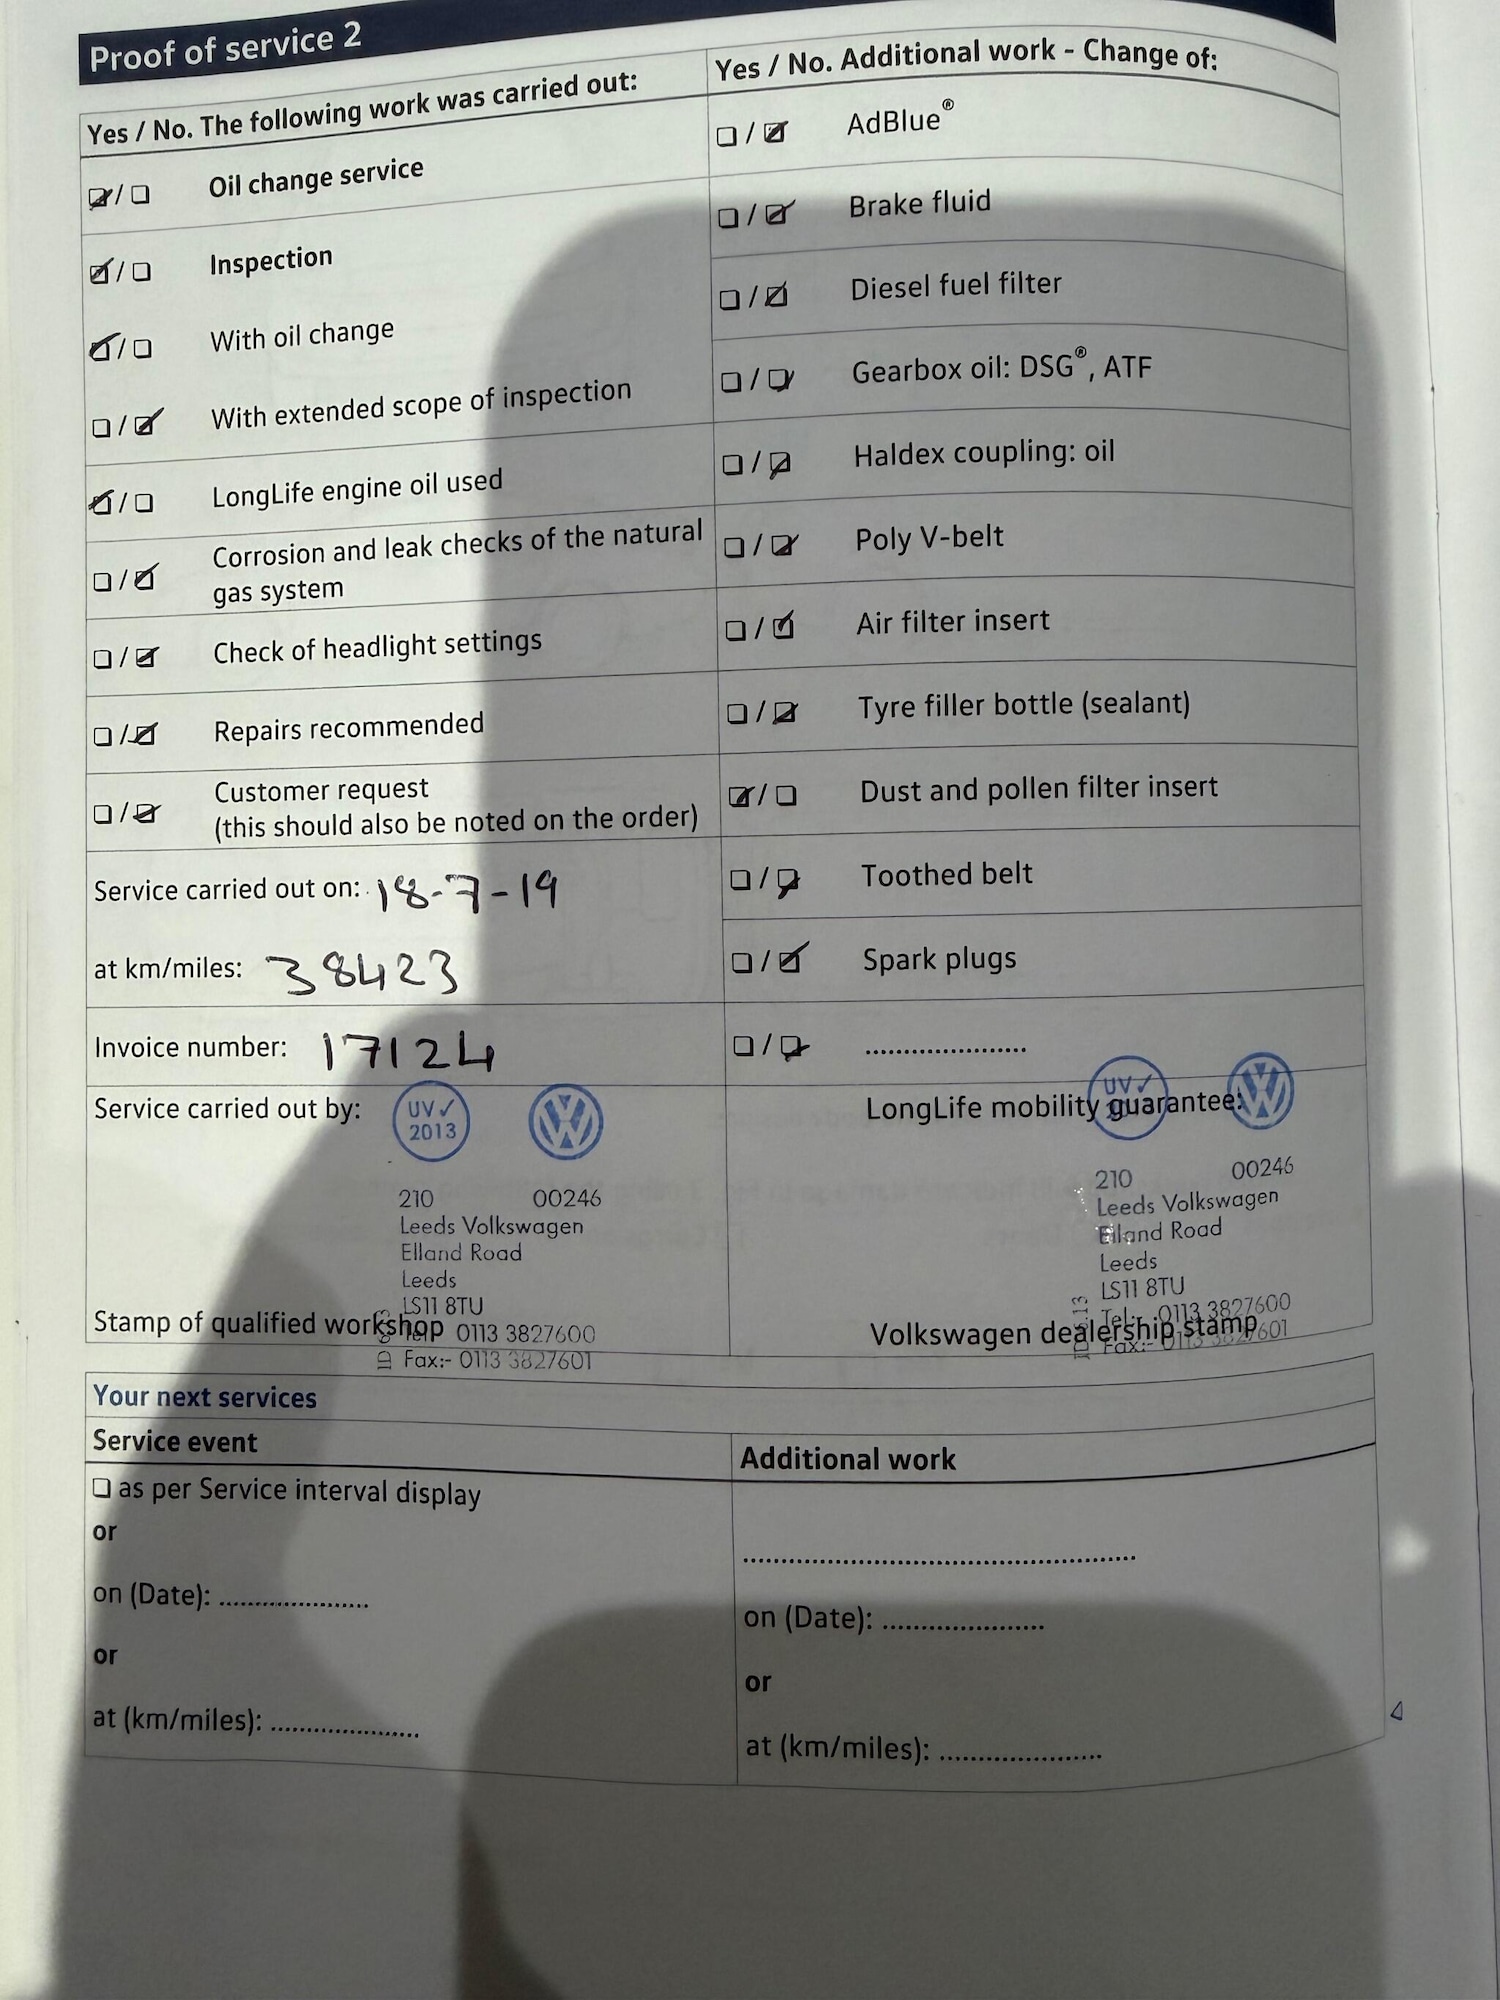 Proof of service 2
Yes / No. The following work was carried out:
☑/☐ Oil change service
☑/☐ Inspection
☑/☐ With oil change
☐/☑ With extended scope of inspection
☑/☐ LongLife engine oil used
☐/☑ Corrosion and leak checks of the natural
gas system
☐/☑ Check of headlight settings
☐/☑ Repairs recommended
☐/☑ Customer request
(this should also be noted on the order)
Service carried out on: 18-7-19
at km/miles: 38423
Invoice number: 17124
Service carried out by:
UV✓
2013
210 00246
Leeds Volkswagen
Elland Road
Leeds
LS11 8TU
0113 3827600
Fax:- 0113 3827601
Stamp of qualified workshop
Yes / No. Additional work - Change of:
☐/☑ AdBlue®
☐/☑ Brake fluid
☐/☑ Diesel fuel filter
☐/☑ Gearbox oil: DSG®, ATF
☐/☑ Haldex coupling: oil
☐/☑ Poly V-belt
☐/☑ Air filter insert
☐/☑ Tyre filler bottle (sealant)
☑/☐ Dust and pollen filter insert
☐/☑ Toothed belt
☐/☑ Spark plugs
☐/☑ .....................
LongLife mobility guarantee:
UV✓
210 00246
Leeds Volkswagen
Elland Road
Leeds
LS11 8TU
Tel:- 0113 3827600
Fax:- 0113 3827601
Volkswagen dealership stamp
Your next services
Service event
☐ as per Service interval display
or
on (Date): .....................
or
at (km/miles): .....................
Additional work
.....................
on (Date): .....................
or
at (km/miles): .....................